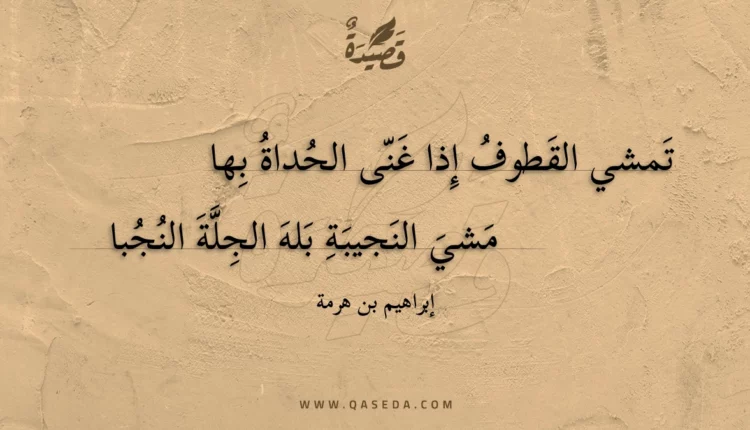 قَصِيدَةٌ
تَمشي القَطوفُ إِذا غَنّى الحُداةُ بِها
مَشيَ النَجيبَةِ بَلهَ الجِلَّةَ النُجُبا
إبراهيم بن هرمة
WWW.QASEDA.COM